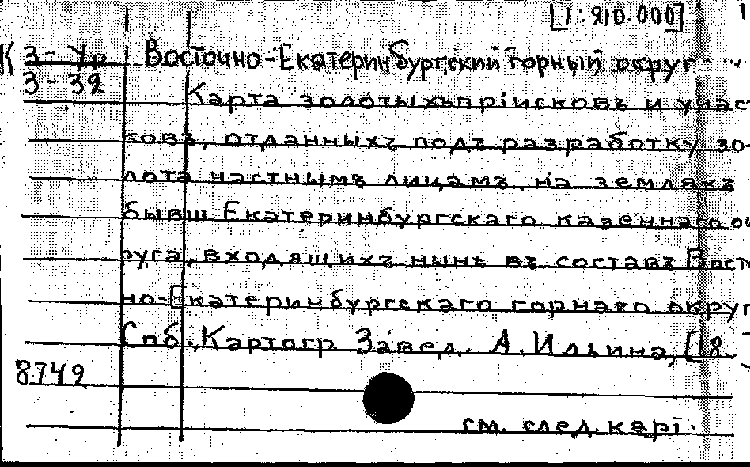 [1:210.000]
К 3-Ур Восточно-Екатеринбургский горный округ
3-32
Карта золотыхъ прiисковъ и учас
ковъ, отданныхъ подъ разработку зо-
лота частнымъ лицамъ на земляхъ
бывш Екатеринбургскаго казеннаго ок
руга, входящихъ нынѣ въ составъ Вост
но-Екатеринбургскаго горнаго округ
Спб. Картогр Завед. А. Ильина, [18
8749
см. след. карт.